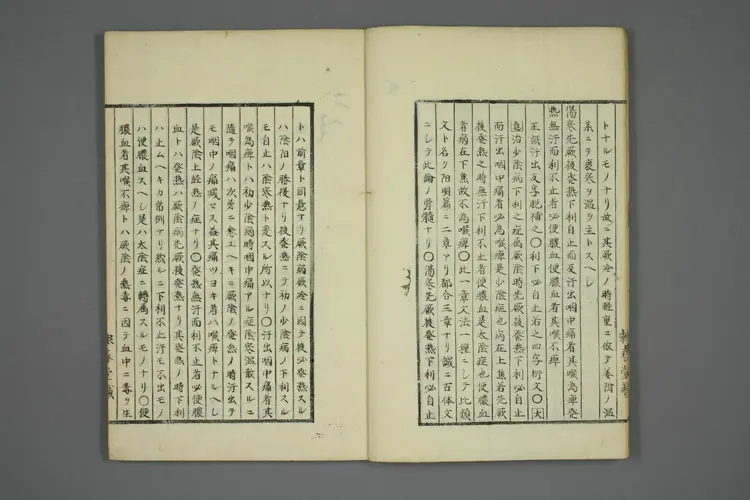 トナルモノナリ故ニ其厥冷ノ時軽重ニ依テ姜附ノ温
薬ニテ裏寒ヲ温ヲ主トスヘシ
傷寒先厥後発熱下利自止而反汗出咽中痛者其喉為痺発
熱無汗而利不止者必便膿血便膿血者其喉不痺
正誤汗出反字脱補之〇利下必自止右之四字衍文〇大
意治少陰病下利之症為厥陰時先厥後発熱下利必自止
而汗出咽中痛者必為喉痺是少陰症也病在上焦若先厥
後発熱之時無汗下利不止者便膿血是太陰症也便膿血
者病在下焦故不為喉痺〇此一章文法一種ニシテ此類
文ト名ク陽明篇ニ二章アリ都合三章ナリ誠ニ古体文
ニシテ此論ノ骨髄ナリ〇傷寒先厥後発熱下利必自止
トハ前章ト同意ナリ厥陰病厥冷ニ因テ後必発熱スル
ハ陰陽ノ勝復ナリ後発熱ニテ初ノ少陰病ノ下利スル
モ自止ハ陰寒熱ト変スル所以ナリ〇汗出咽中痛者其
喉為痺トハ初少陰病時咽中痛アル症陰寒温散スルニ
随テ咽痛ハ次第ニ愈ユヘキニ厥陰ノ発熱ノ時汗出テ
モ咽中ノ痛減セス益其痛ツヨキ者ハ喉痺トナルヘシ
是厥陰上経熱ノ症ナリ〇発熱無汗而利不止者必便膿
血トハ発熱ハ厥陰病先厥後発熱ナリ其発熱ノ時下利
ハ止ムヘキカ当例ナリ然ルニ下利不止汗モ不出モノ
ハ便膿血スヘシ是ハ太陰症ニ轉属スルモノナリ〇便
膿血者其喉不痺トハ厥陰ノ熱毒ニ因テ血中ニ毒ヲ生